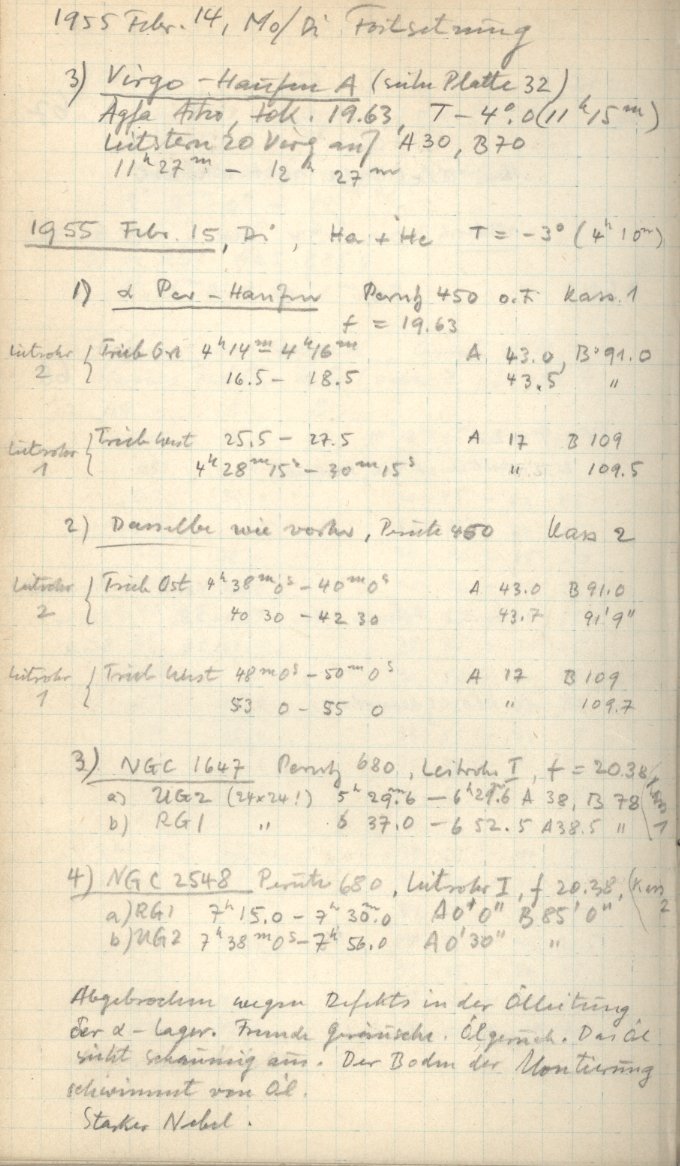 1955 Febr. 14, Mo/Di Fortsetzung
3) Virgo-Haufen A (siehe Platte 32)
Agfa Astro, fok. 19.63, T -4°.0 (11h15m)
Leitstern 20 Virg auf A 30, B 70
11h27m - 12h 27m
1955 Febr. 15, Di, Ha + He T = -3° (4h10m)
1) α Per-Haufen Perutz 450 o.F. Kass. 1
f = 19.63
Leitrohr 2 { Trieb Ost 4h14m - 4h16m A 43.0, B 91.0
16.5 - 18.5 43.5 "
Leitrohr 1 { Trieb West 25.5 - 27.5 A 17 B 109
4h28m15s - 30m15s " 109.5
2) Dasselbe wie vorher, Perutz 450 Kass 2
Leitrohr 2 { Trieb Ost 4h38m0s - 40m0s A 43.0 B 91.0
40 30 - 42 30 43.7 91'9"
Leitrohr 1 { Trieb West 48m0s - 50m0s A 17 B 109
53 0 - 55 0 " 109.7
3) NGC 1647 Perutz 680, Leitrohr I, f = 20.38
a) UG2 (24x24!) 5h29m.6 - 6h29m.6 A 38, B 78
b) RG1 " 6 37.0 - 6 52.5 A 38.5 " 1
4) NGC 2548 Perutz 680, Leitrohr I, f 20.38, (Kass 2
a) RG1 7h15.0 - 7h30m.0 A 0'0" B 85'0"
b) UG2 7h38m0s - 7h56.0 A 0'30" "
Abgebrochen wegen Defekts in der Ölleitung
der α-Lager. Fremde Geräusche. Ölgeruch. Das Öl
sieht schaumig aus. Der Boden der Montierung
schwimmt von Öl.
Starker Nebel.